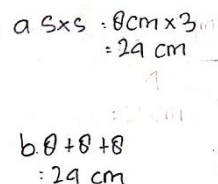 a. s×s : 8cm × 3
= 24 cm
b. 8 + 8 + 8
: 24 cm